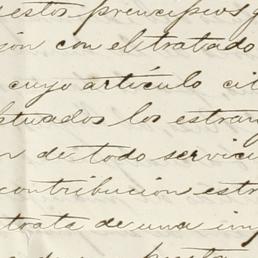 estos principios
ión con el tratado
cuyo artículo cit
ptuados los estran
n de todo servici
contribucion estr
trata de una im